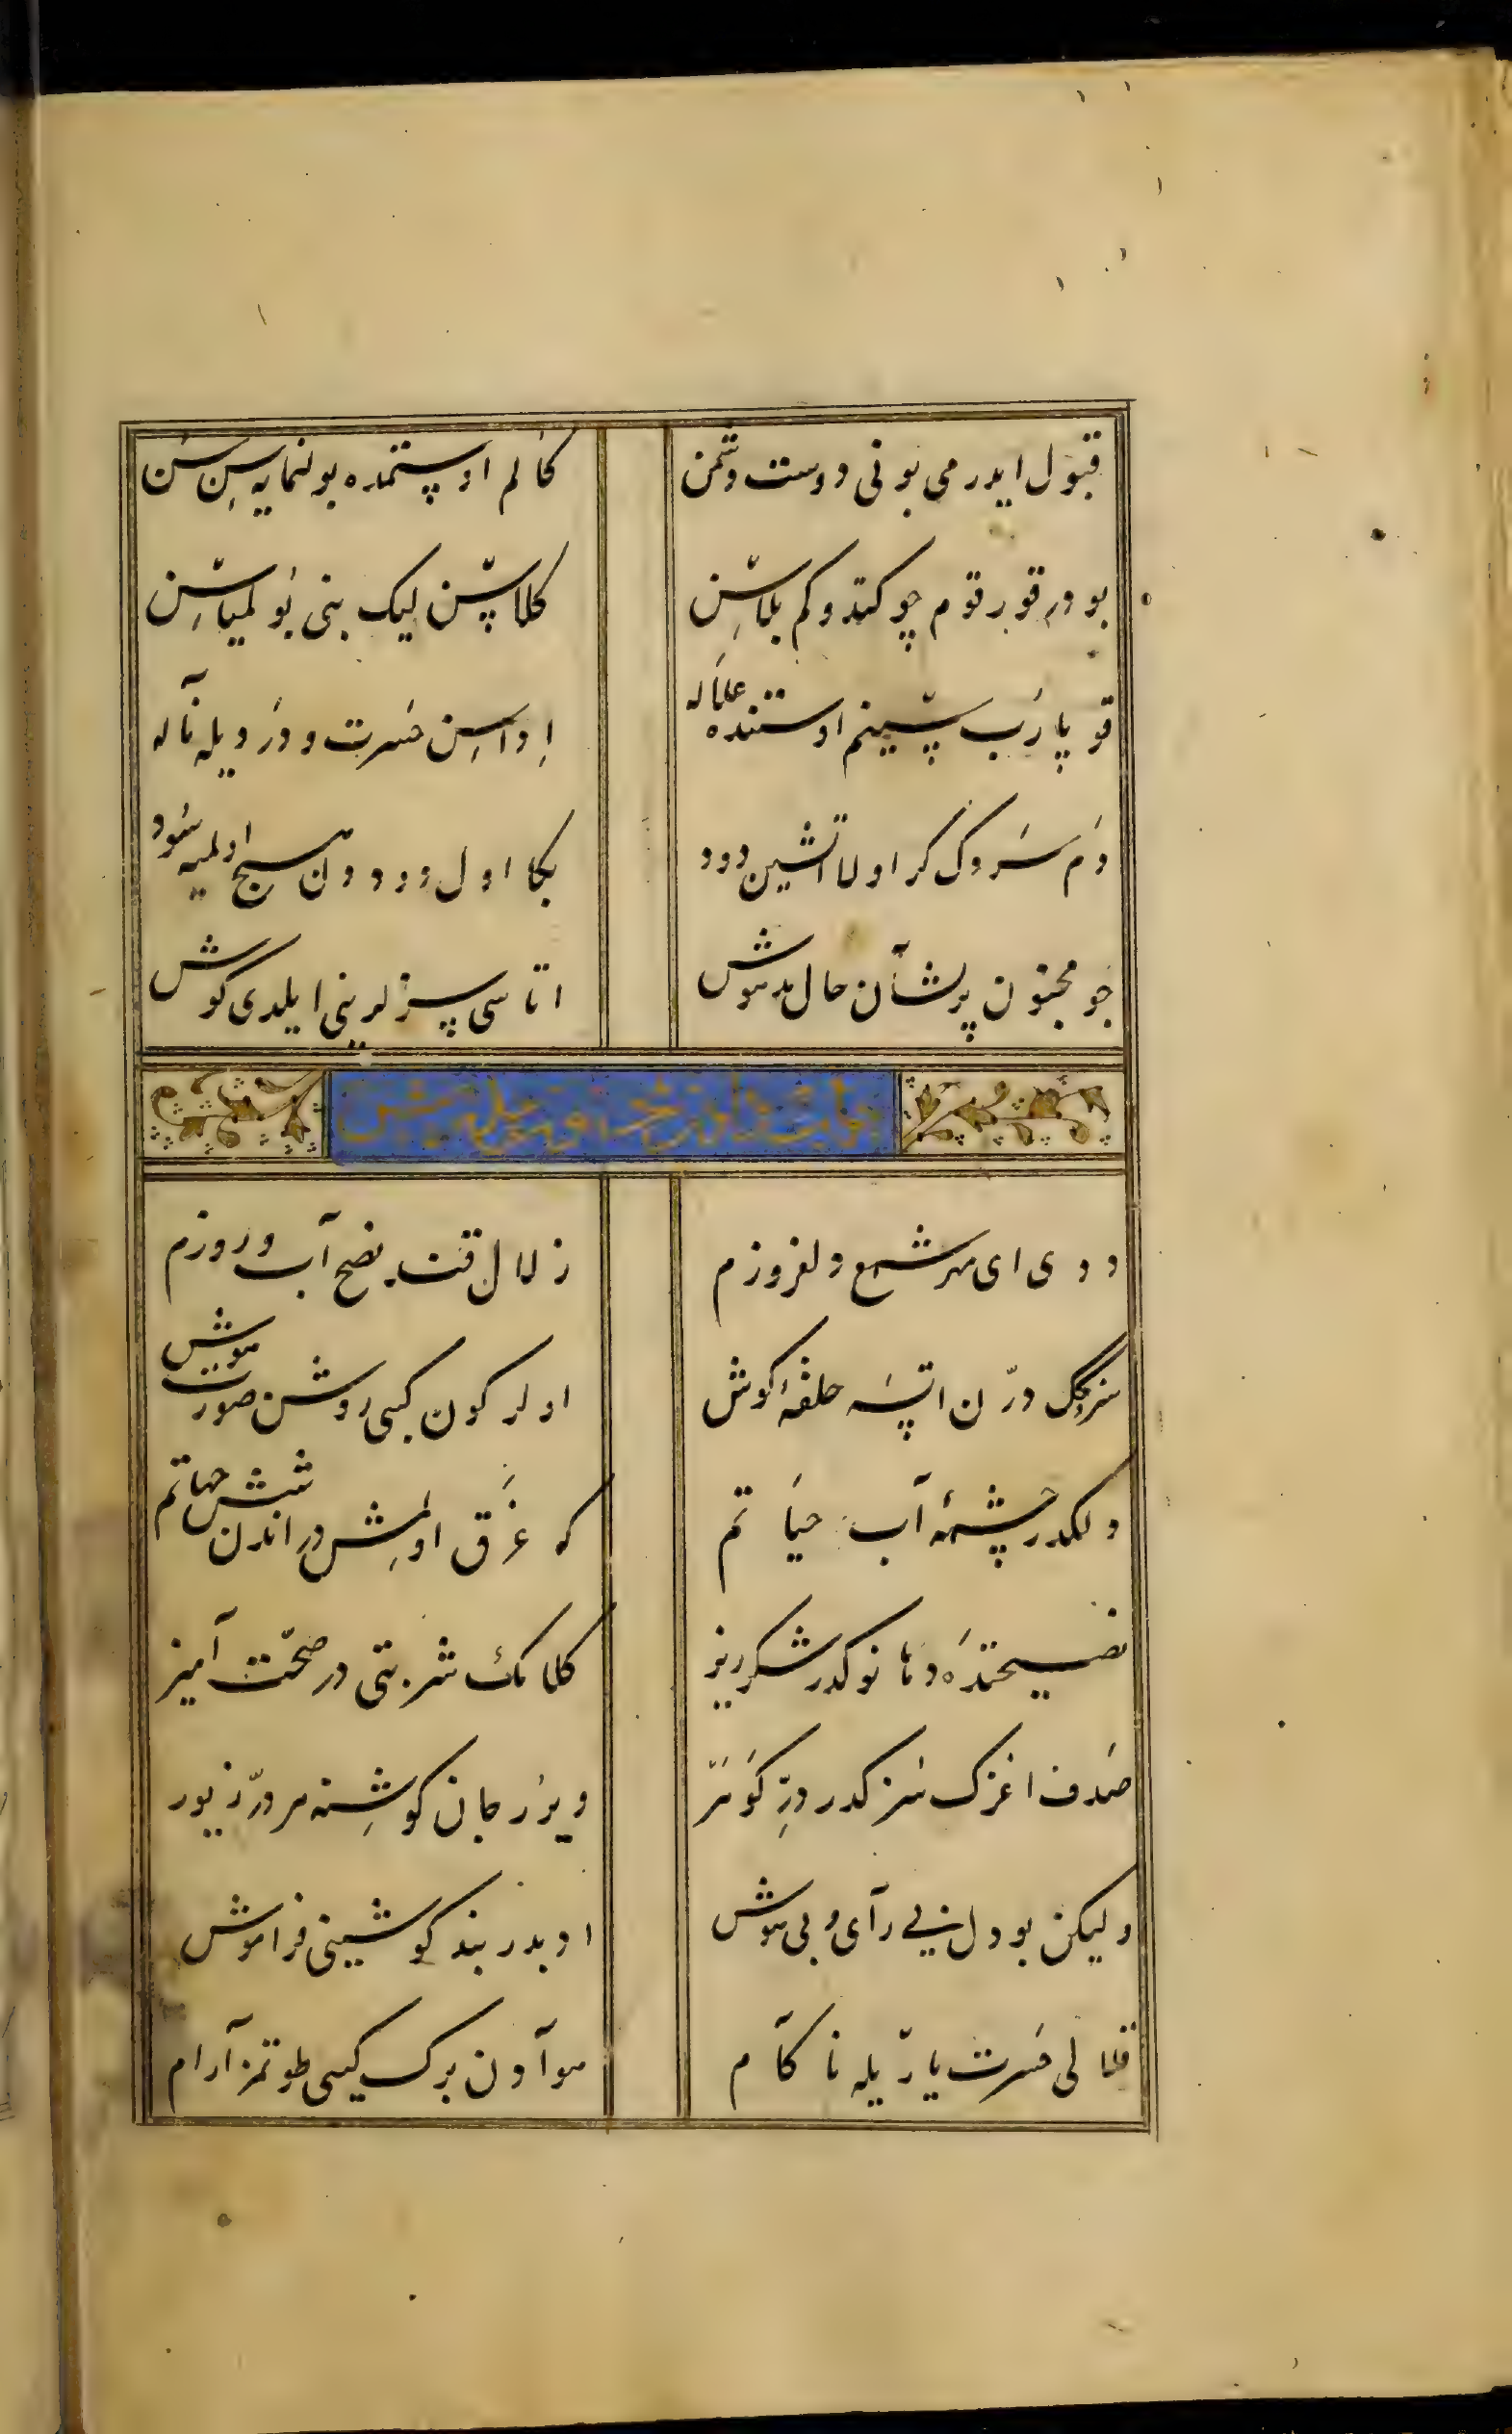 قبول ایدرمی بونی دوست دشمن
کالم اوستمده بولنمایه سن سن
بودر قورقوم چو کتدوکم بلاسن
کلاسن لیک بنی بولمیاسن
قویارب سینم اوستنده علاله
اداسن حسرت و دردیله ناله
دم سردک کر اولا آتشین دود
بکا اول دوددن هیچ اولمیه سود
چو مجنون پریشان حال مدهوش
اتاسی سزلرینی ایلدی کوش
ددی ای مهر شمع دلفروزم
زلال قند نصح آب و روزم
سزکک درن اتسه حلقهٔ کوش
اولر کون کبی روشن صورت هوش
دلکدر چشمهٔ آب حیاتم
که غرق اولمشدر اندن شش جهاتم
نصیحتده دهانوکدر شکرریز
کلامک شربتی در صحت آمیز
صدف اغزک سزکدر در کوهر
ویرر جان کوشنه هر در زیور
ولیکن بو دل بی رآی و بی هوش
اوبدر بند کوشینی فراموش
قنالی حسرت یاریله ناکآم
هوآدن برک کیبی طوتمز آرام